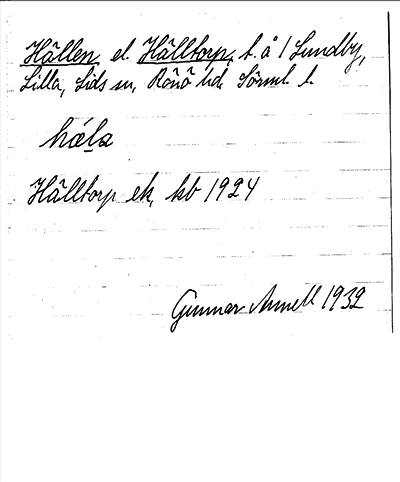 Hällen el. Hälltorp, t. å / Lundby,
Lilla, Lids sn, Rönö hd. Sörml. l.
hǽla
Hälltorp ek. kb 1924
Gunnar Annell 1932